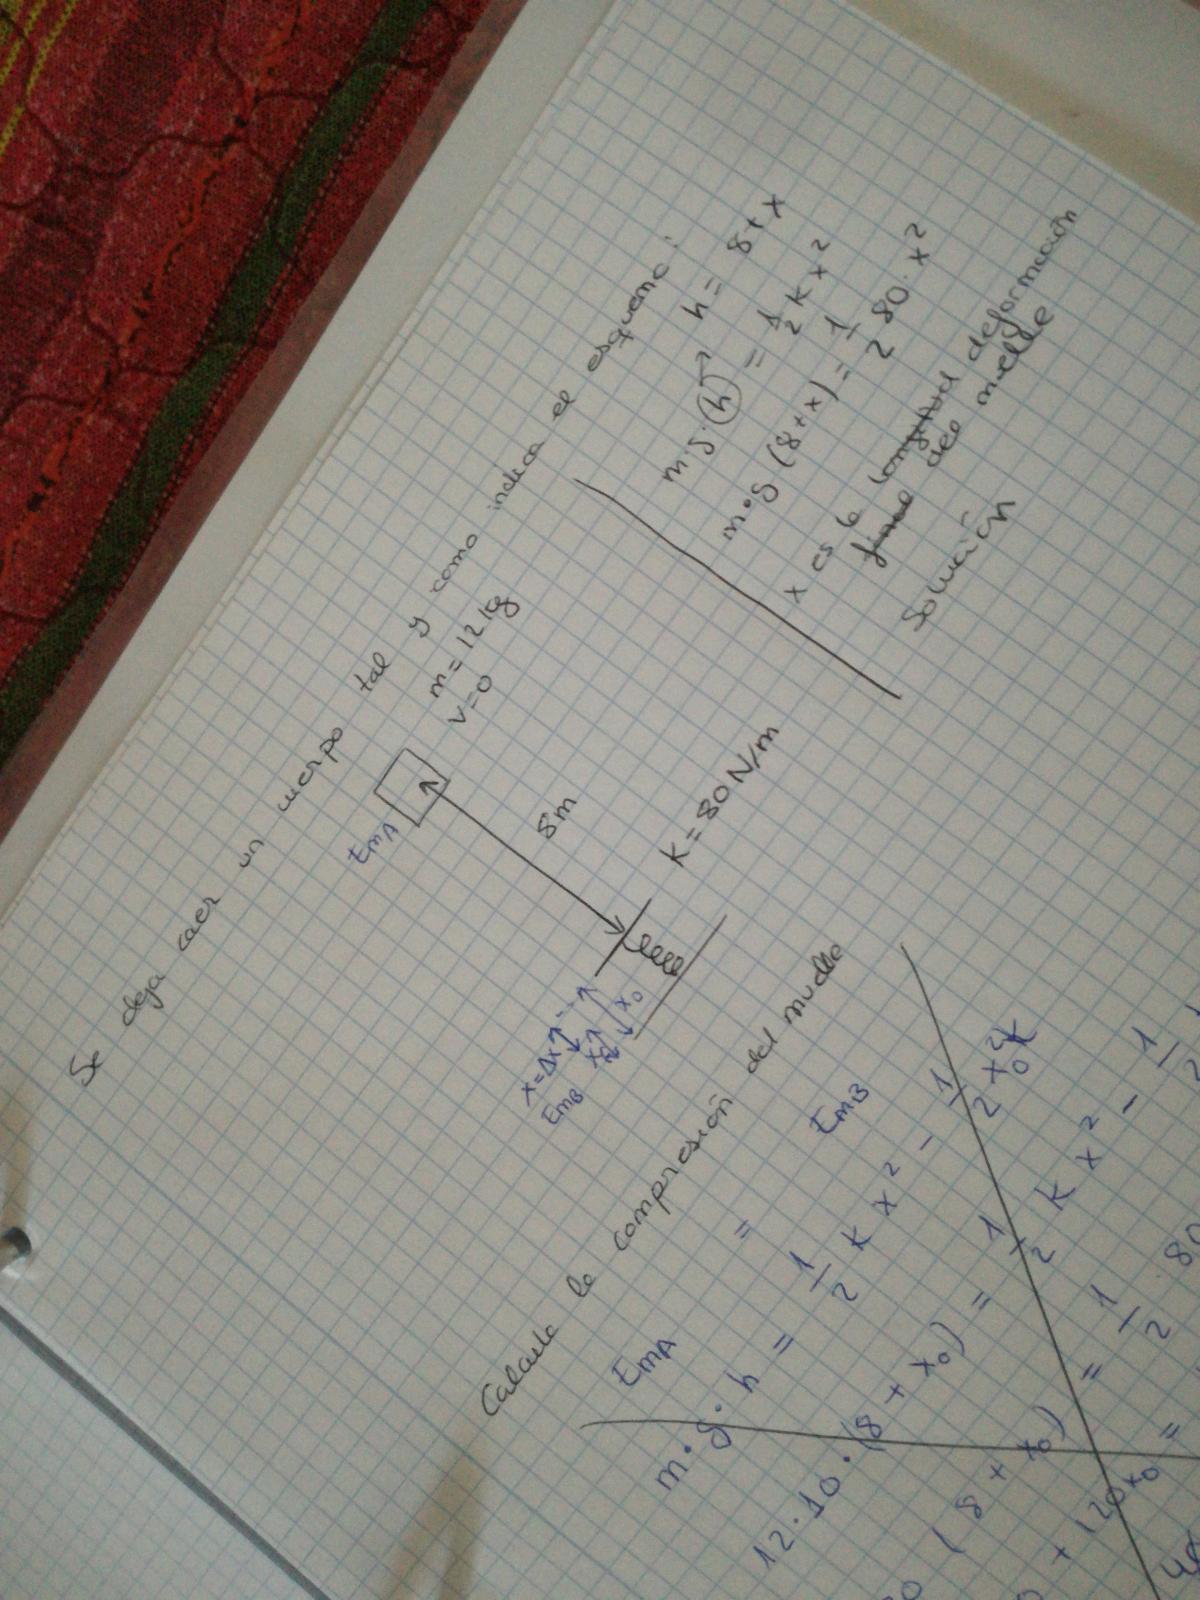 Se deja caer un cuerpo tal y como indica el esquema:
EmA
m = 12 kg
v=0
8m
K = 80 N/m
x=Δx
EmB
x₀
m·g·(h) = 1/2 k x²
h = 8+x
m·g (8+x) = 1/2 80·x²
x es la longitud deformación
final del muelle
Solución
Calcule la compresión del muelle
EmA = EmB
m·g·h = 1/2 k x² - 1/2 x₀² k
12·10·(8 + x₀) = 1/2 k x² - 1/2
(8 + x₀) = 1/2 80
+ 120x₀ =